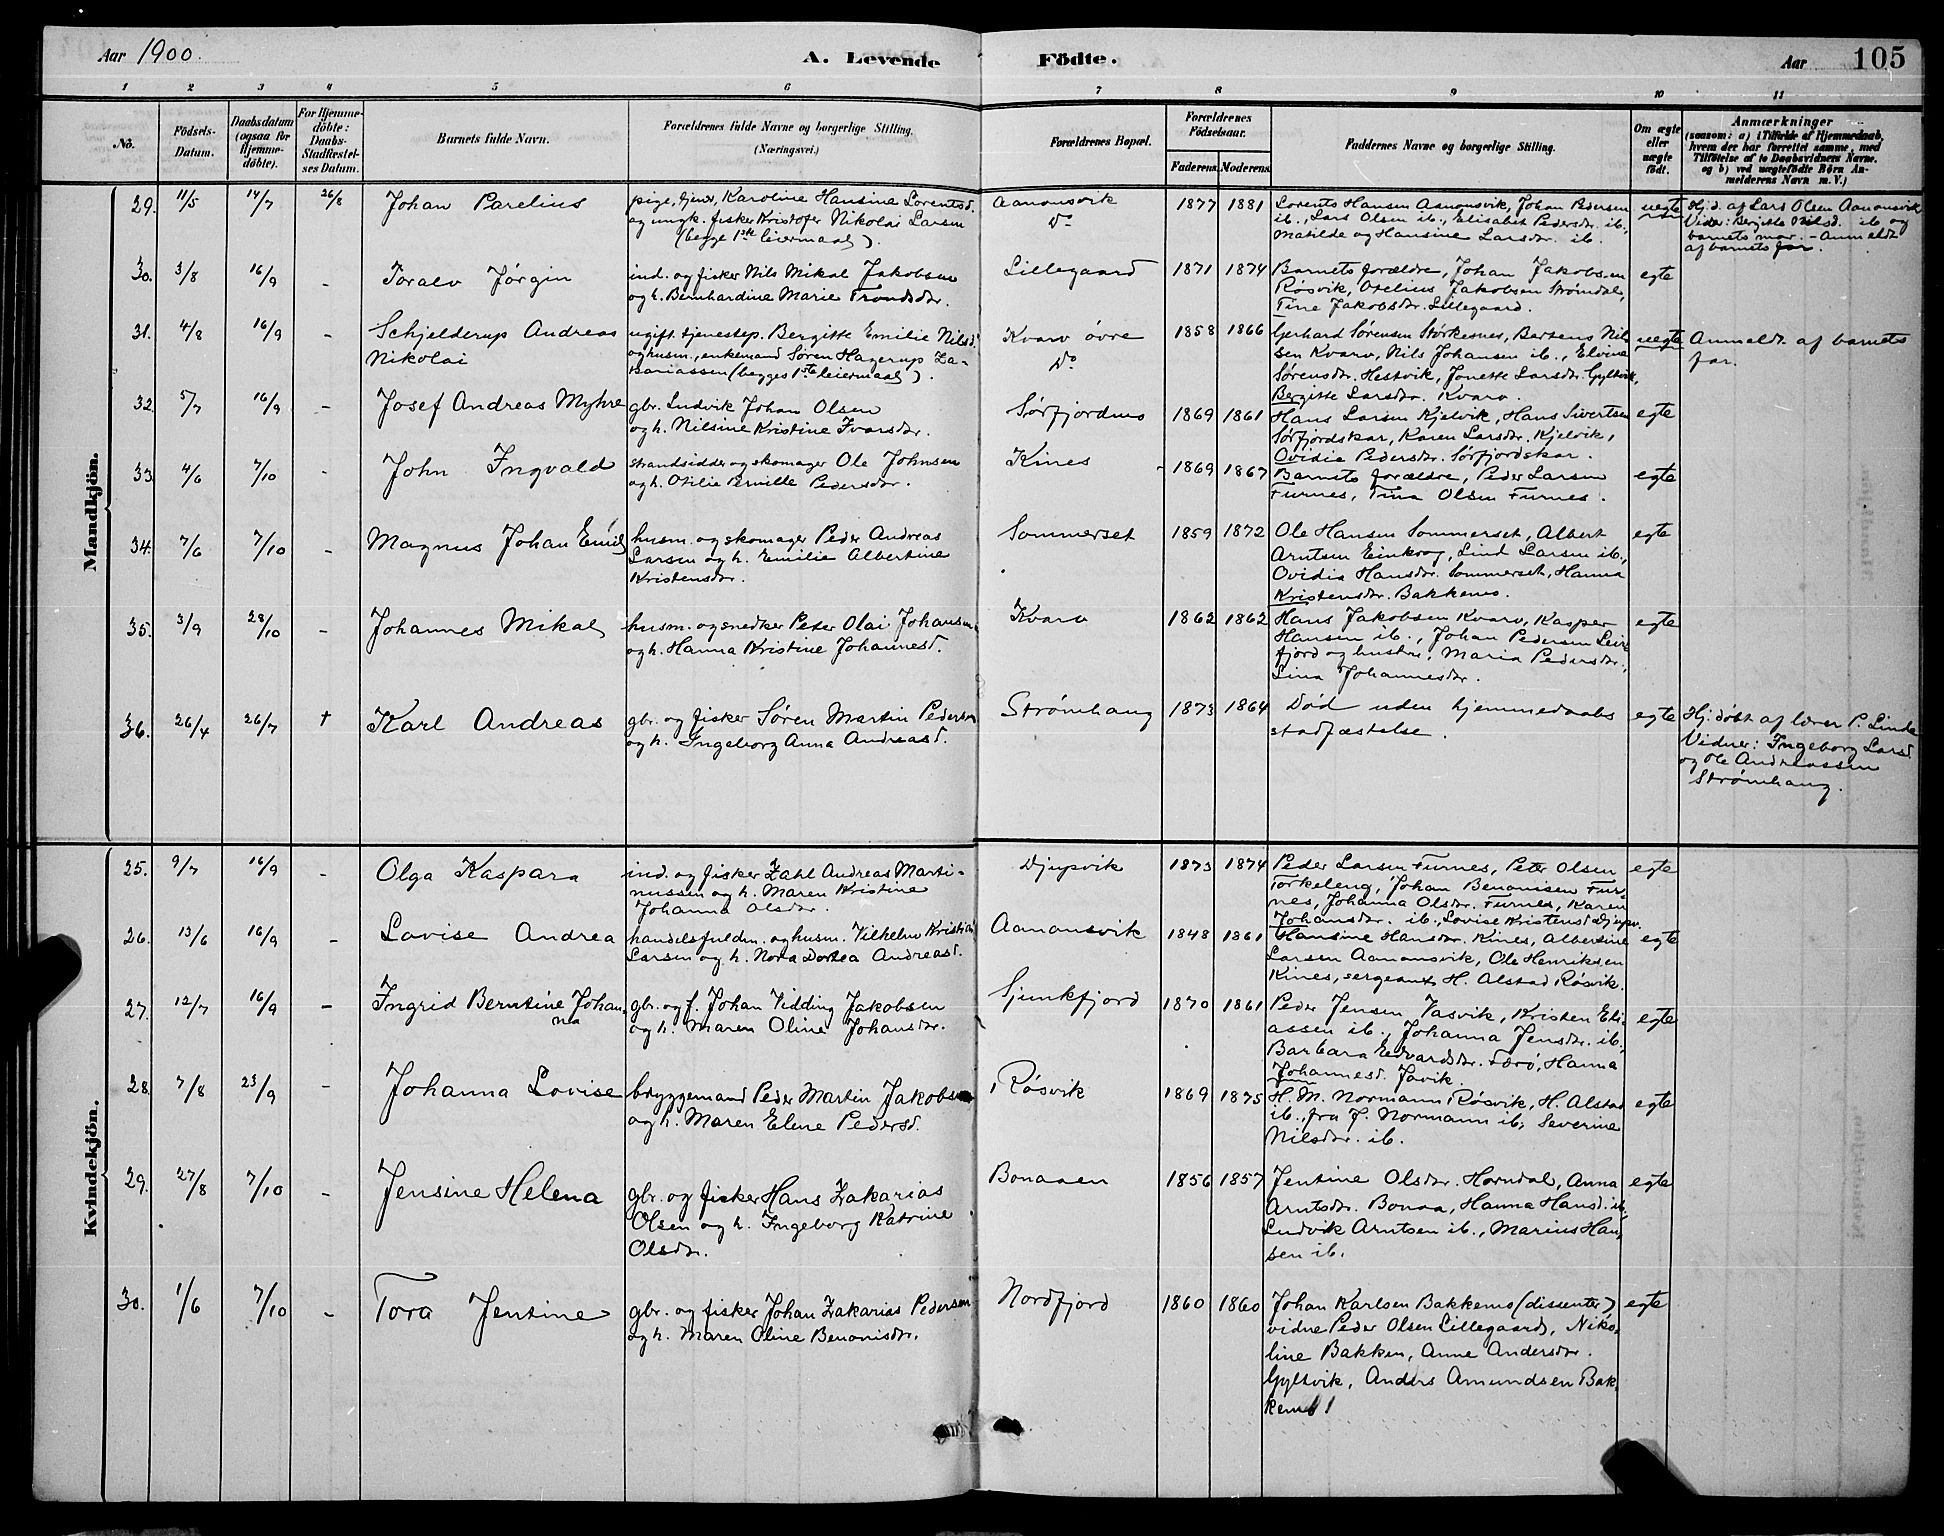 Aar 1900.
A. Levende Födte.
Aar 105
1 2 3 4 5 6 7 8 9 10 11
No.
Födsels-Datum.
Daabsdatum (ogsaa for Hjemme-döbte).
For Hjemme-döbte: Daabs-Stadfæstel-ses Datum.
Barnets fulde Navn.
Forældrenes fulde Navne og borgerlige Stilling. (Næringsvei.)
Forældrenes Bopæl.
Forældrenes Födselsaar.
Faderens. Moderens.
Faddernes Navne og borgerlige Stilling.
Om ægte eller uægte födt.
Anmærkninger
(saasom: a) i Tilfælde af Hjemmedaab, hvem der har forrettet samme, med Tilföielse af to Daabsvidners Navne. og b) ved uægtefödte Börn An-melderens Navn m. V.)
Mandkjön.
29. 11/5 14/7 26/8 Johan Parelius
pige, tjener, Karoline Hansine Lorentsd.
og ungk. fisker Kristofer Nikolai Larsen
(begge 1ste leiermaal).
Aanonsvik
Do
1877 1881
Lorents Hansen Aanonsvik, Johan Pedersen
ib., Lars Olsen ib., Elisabet Pedersdr. ib.,
Matilde og Hansine Larsdr. ib.
uegte
Hj.d. af Lars Olsen Aanonsvik
Vidner: Bergitte Nilsd. ib og
barnets mor. - Anmeldt
af barnets far.
30. 3/8 16/9 - Toralv Jørgin
ind. og fisker Nils Mikal Jakobsen
og h. Bernhardine Marie Trondsdr.
Lillegaard
1871 1874
Barnets forældre, Johan Jakobsen
Røsvik, Otelius Jakobsen Strømdal,
Tine Jakobsdr. Lillegaard.
egte
31. 4/8 16/9 - Schjelderup Andreas
Nikolai
ugift tjenestep. Bergitte Emilie Nilsd.
og husm., enkemand Søren Hagerup Za-
kariassen (begges 1ste leiermaal).
Kvarv øvre
Do
1858 1866
Gerhard Sørensen Størkesnes, Bertens Nil-
sen Kvarv, Nils Johansen ib., Elvine
Sørensdr. Hestvik, Jonette Larsdr. Gyltvik,
Bergitte Larsdr. Kvarv.
uegte
Anmeldt af barnets
far.
32. 5/7 16/9 - Josef Andreas Myhre
gbr. Ludvik Johan Olsen
og h. Nilsine Kristine Ivarsdr.
Sørfjordmo
1869 1861
Hans Larsen Kjelvik, Hans Sivertsen
Sørfjordskar, Karen Larsdr. Kjelvik,
Ovidie Pedersdr. Sørfjordskar.
egte
33. 4/6 7/10 - John Ingvald
strandsidder og skomager Ole Johnsen
og h. Otilie Pernille Pedersdr.
Kines
1869 1867
Barnets forældre, Peder Larsen
Furnes, Tina Olsen Furnes.
egte
34. 7/6 7/10 - Magnus Johan Emil
husm. og skomager Peder Andreas
Larsen og h. Emilie Albertine
Kristensdr.
Sommerset
1859 1872
Ole Hansen Sommerset, Albert
Arntsen Einkrog, Lind Larsen ib.,
Ovidia Hansdr. Sommerset, Hanna
Kristensdr. Bakkemo.
egte
35. 3/9 28/10 - Johannes Mikal
husm. og snedker Peter Olai Johansen
og h. Hanna Kristine Johannesd.
Kvarv
1862 1862
Hans Jakobsen Kvarv, Kasper
Hansen ib., Johan Pedersen Leir-
fjord og hustru, Maria Pedersdr.,
Lina Johannesdr.
egte
36. 26/4 26/7 † Karl Andreas
gbr. og fisker Søren Martin Pedersen
og h. Ingeborg Anna Andreasd.
Strømhaug
1873 1864
Død uden hjemmedaabs
stadfæstelse.
egte
Hj. døbt af lærer P. Linde
Vidner: Ingeborg Larsd.
og Ole Andreassen
Strømhaug.
Kvindekjön.
25. 9/7 16/9 - Olga Kaspara
ind. og fisker Zahl Andreas Marti-
nussen og h. Maren Kristine
Johanna Olsdr.
Djupvik
1873 1874
Peder Larsen Furnes, Peter Olsen
Torkeleng, Johan Benonisen Fur-
nes, Johanna Olsdr. Furnes, Karen
Johansdr. ib., Lovise Kristensd. Djupv.
egte
26. 13/6 16/9 - Lovise Andrea
handelsfuldm. og husm. Vilhelm Kristian
Larsen og h. Nora Dortea Andreasd.
Aanonsvik
1848 1861
Hansine Hansdr. Kines, Albertine
Larsen Aanonsvik, Ole Henriksen
Kines, sergeant H. Alstad Røsvik.
egte
27. 12/7 16/9 - Ingrid Berntine Johan-
na
gbr. og f. Johan Vidding Jakobsen
og h. Maren Oline Johansdr.
Gjunkfjord
1870 1861
Peder Jensen Vasvik, Kristen Eli-
assen ib., Johanna Jensdr. ib.,
Barbara Edvardsdr. Færø, Hanna
Johannesd. Javik.
egte
28. 7/8 23/9 - Johanna Lovise
bryggemand Peder Martin Jakobsen
og h. Maren Elene Pedersd.
Røsvik
1869 1875
H. M. Normann Røsvik, H. Alstad
ib., fru J. Normann ib., Severine
Nilsdr. ib.
egte
29. 27/8 7/10 - Jensine Helena
gbr. og fisker Hans Zakarias
Olsen og h. Ingeborg Katrine
Olsdr.
Bonaaen
1856 1857
Jentine Olsdr. Horndal, Anna
Arntsdr. Bonaa, Hanna Hansd. ib.
Ludvik Arntsen ib., Marius Han-
sen ib.
egte
30. 1/6 7/10 - Tora Jentine
gbr. og fisker Johan Zakarias Pedersen
og h. Maren Oline Benonisdr.
Nordfjord
1860 1860
Johan Karlsen Bakkemo (dissenter)
vidne Peder Olsen Lillegaard, Niko-
line Bakken, Anne Andersdr.
Gyltvik, Anders Amundsen Bak-
kemo
egte